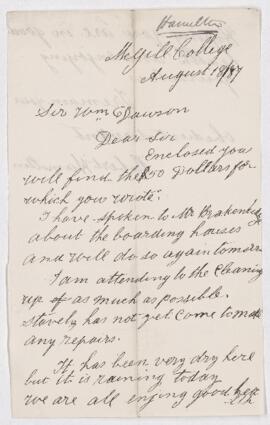 Hamilton
McGill College
August 18/87
Sir Wm Dawson
Dear Sir
Enclosed you
will find the 50 Dollars for
which you wrote.
I have spoken to Mr Brakenridge
about the boarding houses
and will do so again tomorrow
I am attending to the Cleaning
up of as much as possible.
has not yet Come to make
any repairs.
It has been very dry here
but it is raining today
we are all enjoying good health